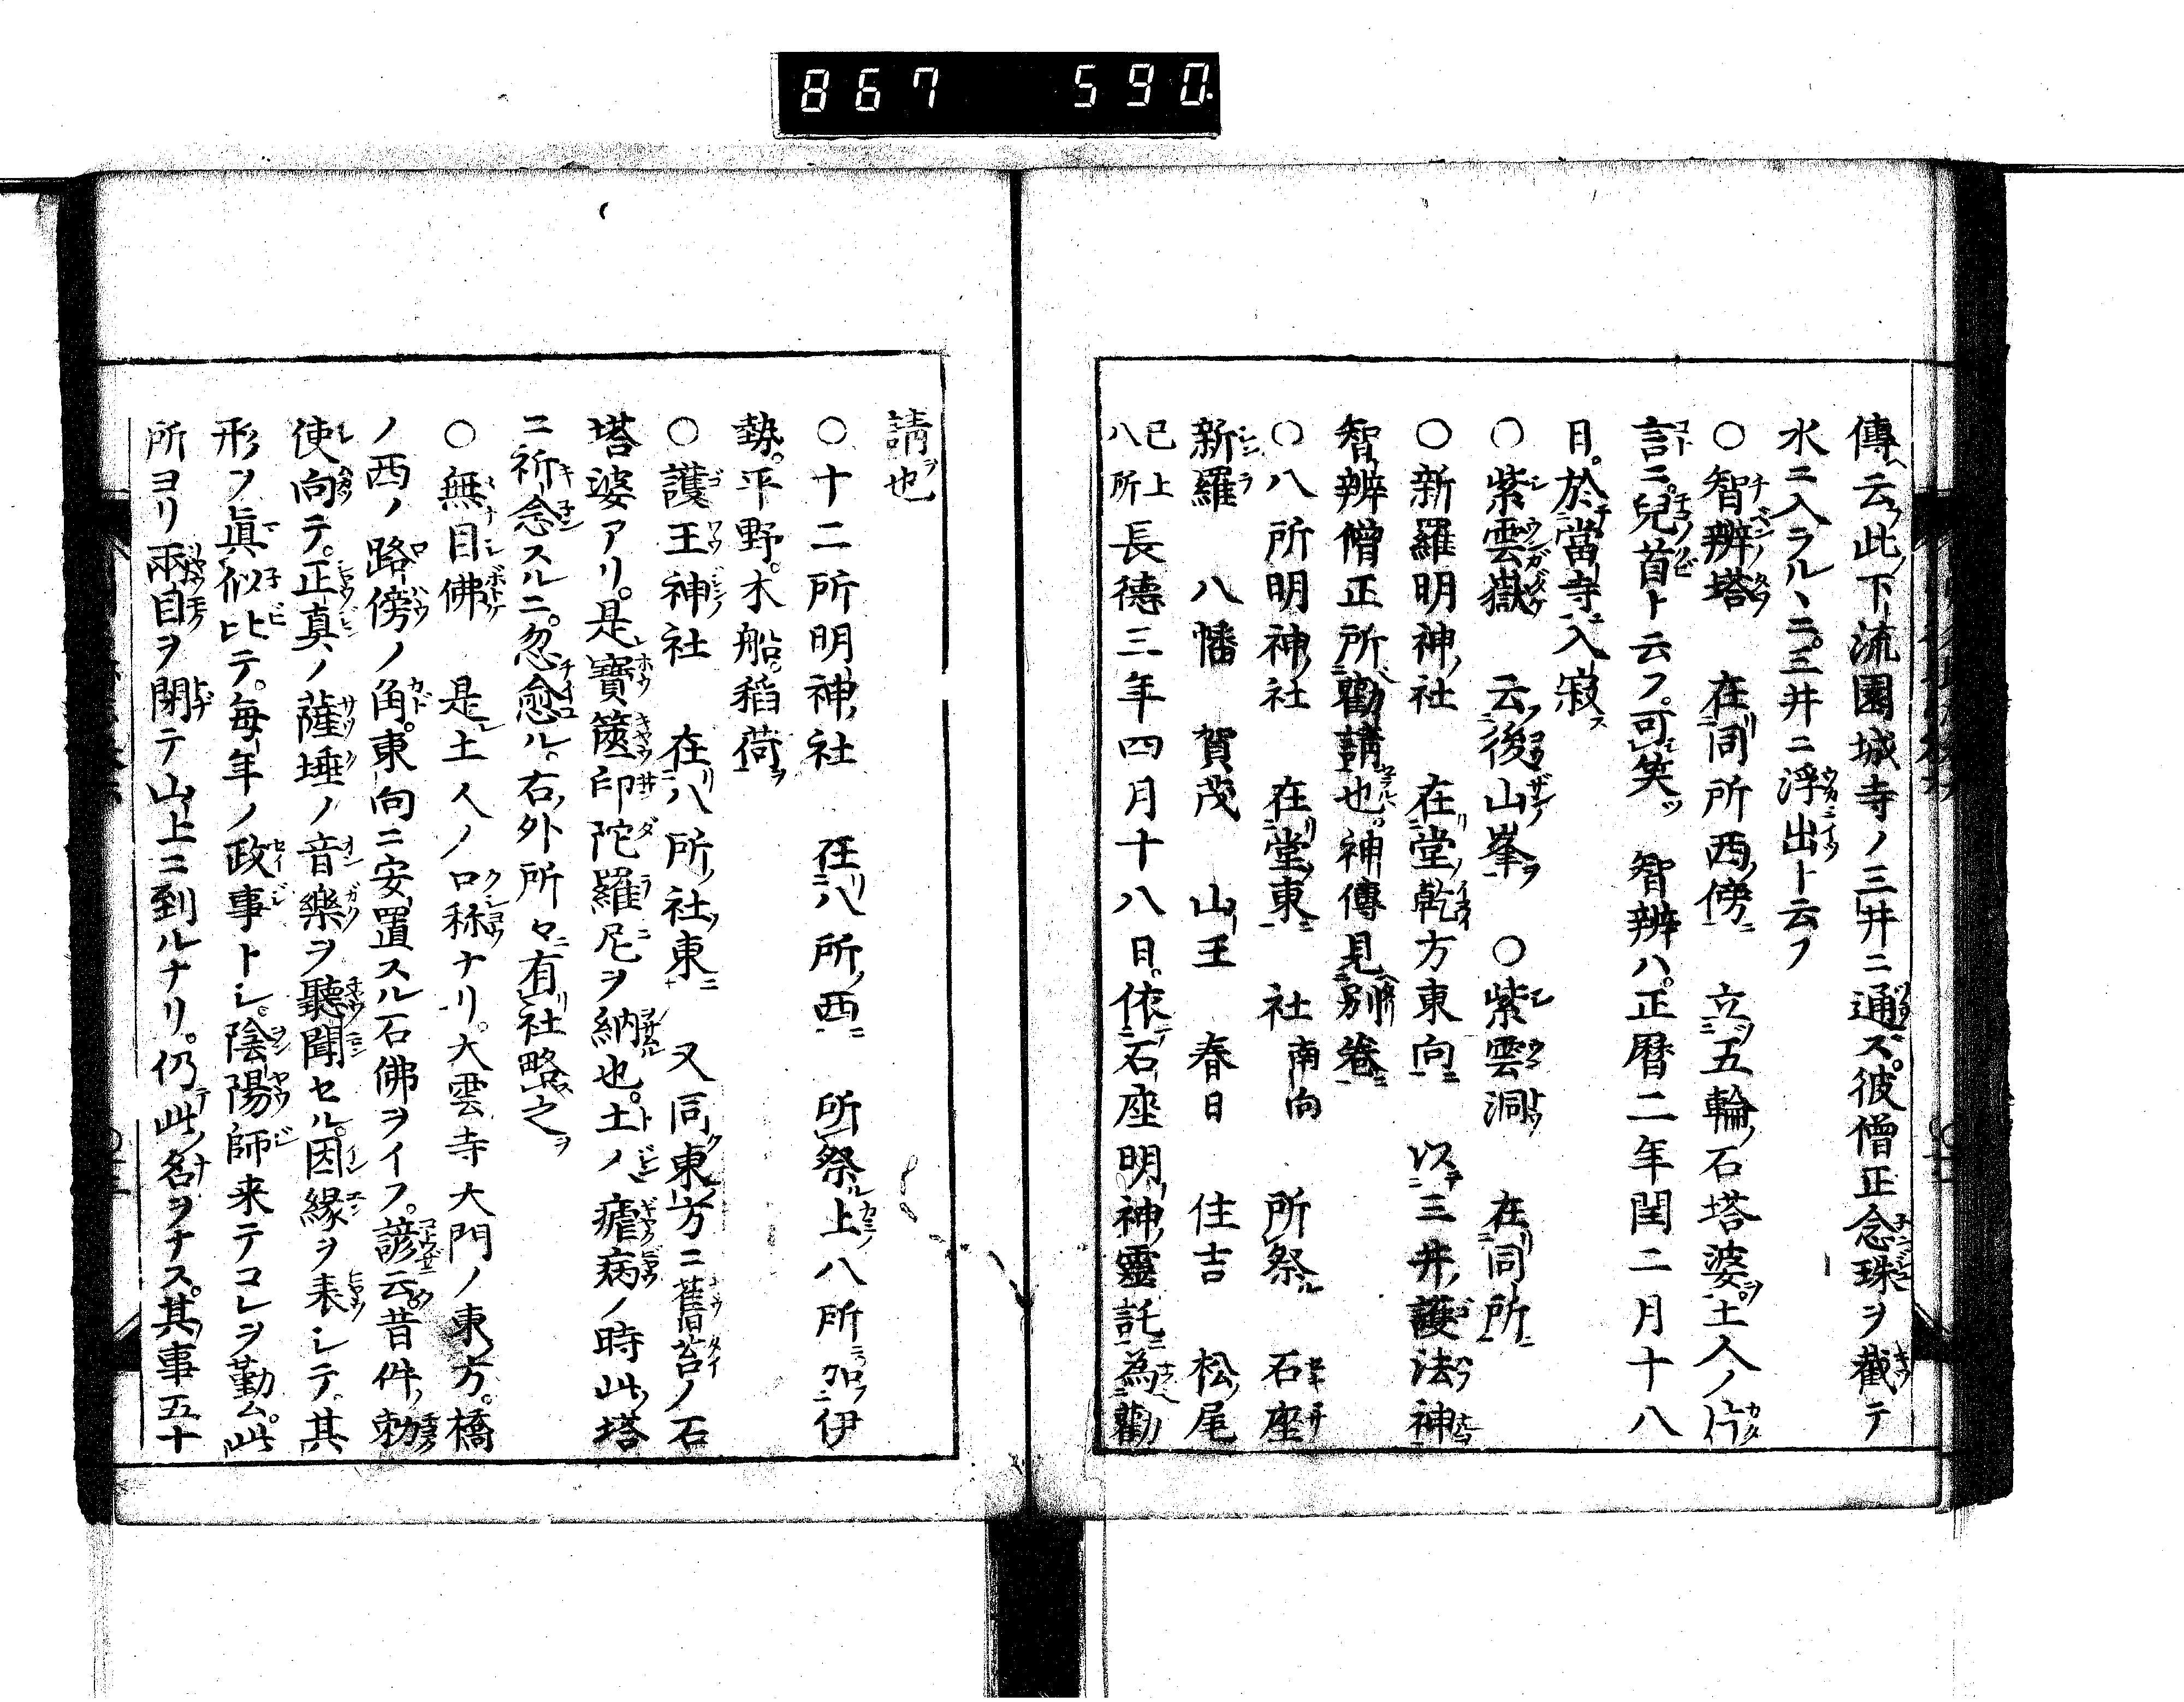 867 590
傳云此下流園城寺ノ三井ニ通ス。彼僧正念珠ヲ截テ
水ニ入ラルヽニ。三井ニ浮出ト云フ
○智辨塔 在同所西傍 立五輪石塔婆。土人ノ片
言ニ。兒首ト云フ。可笑 智辨ハ。正曆二年閏二月十八
日。於當寺入寂
○紫雲嶽 云後山峯 ○紫雲洞 在同所
○新羅明神社 在堂乾方東向 以三井護法神
智辨僧正所勸請也。神傳見別卷
○八所明神社 在堂東 社南向 所祭 石座
新羅 八幡 賀茂 山王 春日 住吉 松尾
已上八所 長德三年四月十八日。依石座明神靈託為勸
請也
○十二所明神社 在八所西 所祭上八所加伊
勢。平野。木船。稻荷
○護王神社 在八所社東 又同東方ニ舊苔ノ石
塔婆アリ。是寶篋印陀羅尼ヲ納也。土ノ瘧病ノ時此塔
ニ祈念スルニ。忽愈ル。右外所々有社略之
○無目佛 是土人ノ口称ナリ。大雲寺大門ノ東方。橋
ノ西ノ路傍ノ角。東向ニ安置スル石佛ヲイフ。諺云昔件勅
使向テ。正真ノ薩埵ノ音樂ヲ聽聞セル。因緣ヲ表シテ。其
形ヲ眞似ヒテ。毎年ノ政事トシ。陰陽師来テコレヲ勤ム。此
所ヨリ兩目ヲ閉テ山上ニ到ルナリ。仍此名ヲナス。其事五十